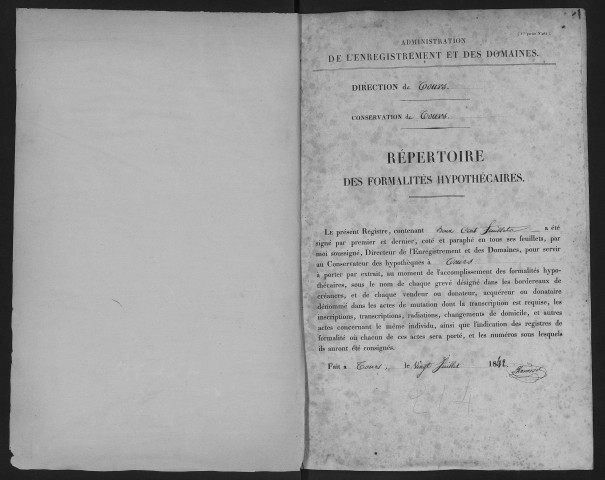 ADMINISTRATION
DE L'ENREGISTREMENT ET DES DOMAINES.
DIRECTION de Tours.
CONSERVATION de Tours
RÉPERTOIRE
DES FORMALITÉS HYPOTHÉCAIRES.
LE présent Registre, contenant Deux Cent feuillets a été
signé par premier et dernier, coté et paraphé en tous ses feuillets, par
moi soussigné, Directeur de l'Enregistrement et des Domaines, pour servir
au Conservateur des hypothèques à Tours
à porter par extrait, au moment de l'accomplissement des formalités hypo-
thécaires, sous le nom de chaque grevé désigné dans les bordereaux de
créances, et de chaque vendeur ou donateur, acquéreur ou donataire
dénommé dans les actes de mutation dont la transcription est requise, les
inscriptions, transcriptions, radiations, changements de domicile, et autres
actes concernant le même individu, ainsi que l'indication des registres de
formalité où chacun de ces actes sera porté, et les numéros sous lesquels
ils auront été consignés.
FAIT à Tours le Vingt Juillet 1842